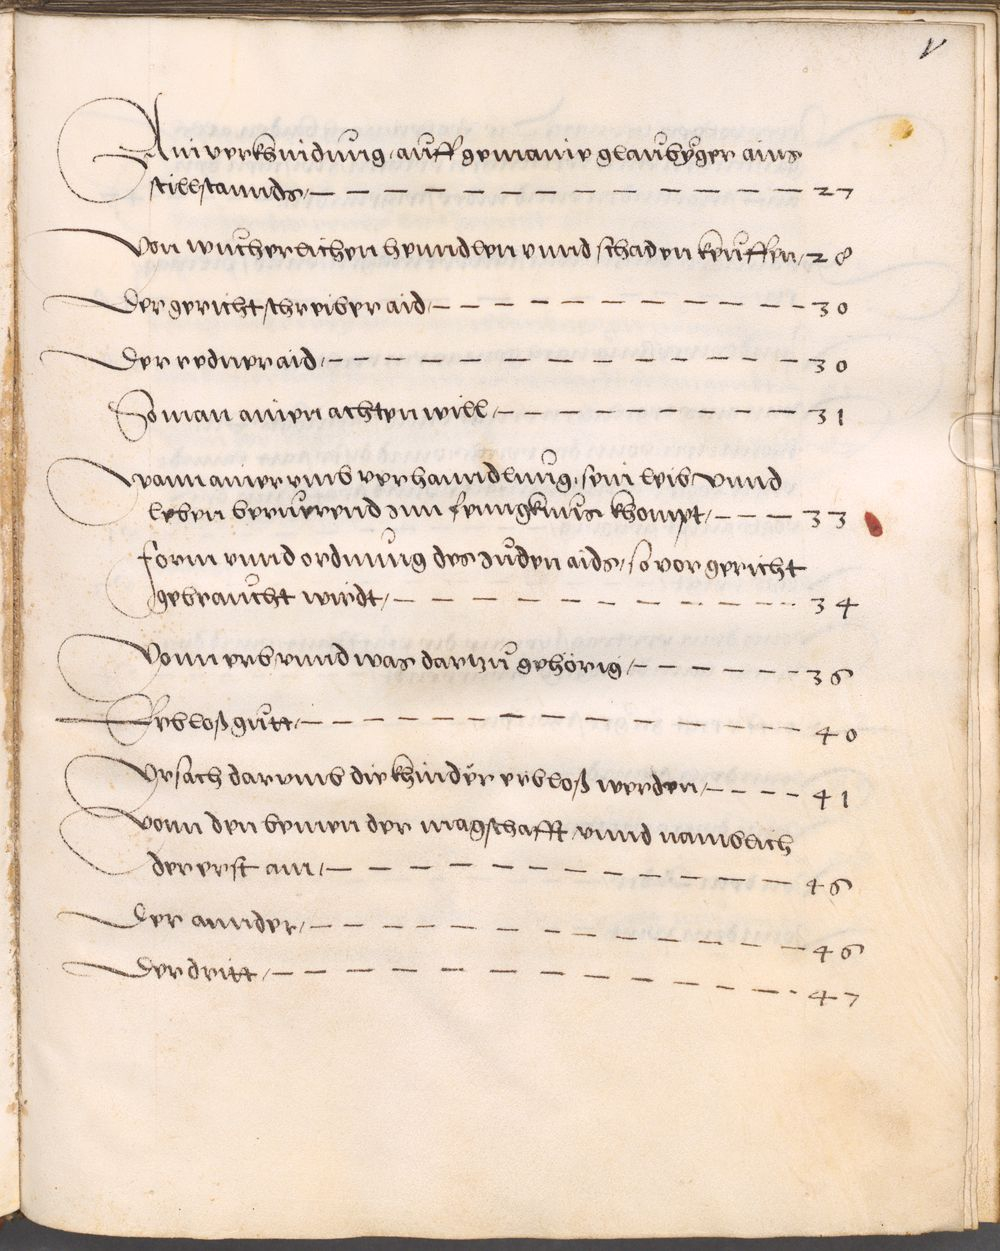 V
Ain verkhindung auff gemaine glaubyger ains
stillstannds, — — — — — — — — — — — — — 27
Von wucherlichen henndlen vnnd schaden keuffen, 28
Der gericht schreiber aid, — — — — — — — — — 30
Der redner aid, — — — — — — — — — — — 30
So man ainen achten will, — — — — — — — 31
Wann ainer vmb verhanndlung, sein leib vnnd
leben beruerend Inn fenngknus khompt, — — — 33
form vnnd ordnung des Juden aids, so vor gericht
gebraucht wirdt, — — — — — — — — — — 34
Vonn erb vnnd was dartzu gehörig, — — — — 36
Erbloß gutt, — — — — — — — — — — — — 40
Vrsach darumb die khinder erbloß werden, — — — — 41
Vonn den benien der magschafft vnnd namblich
der erst ain, — — — — — — — — — — — — 46
Der annder, — — — — — — — — — — — — 46
Der dritt, — — — — — — — — — — — — 47